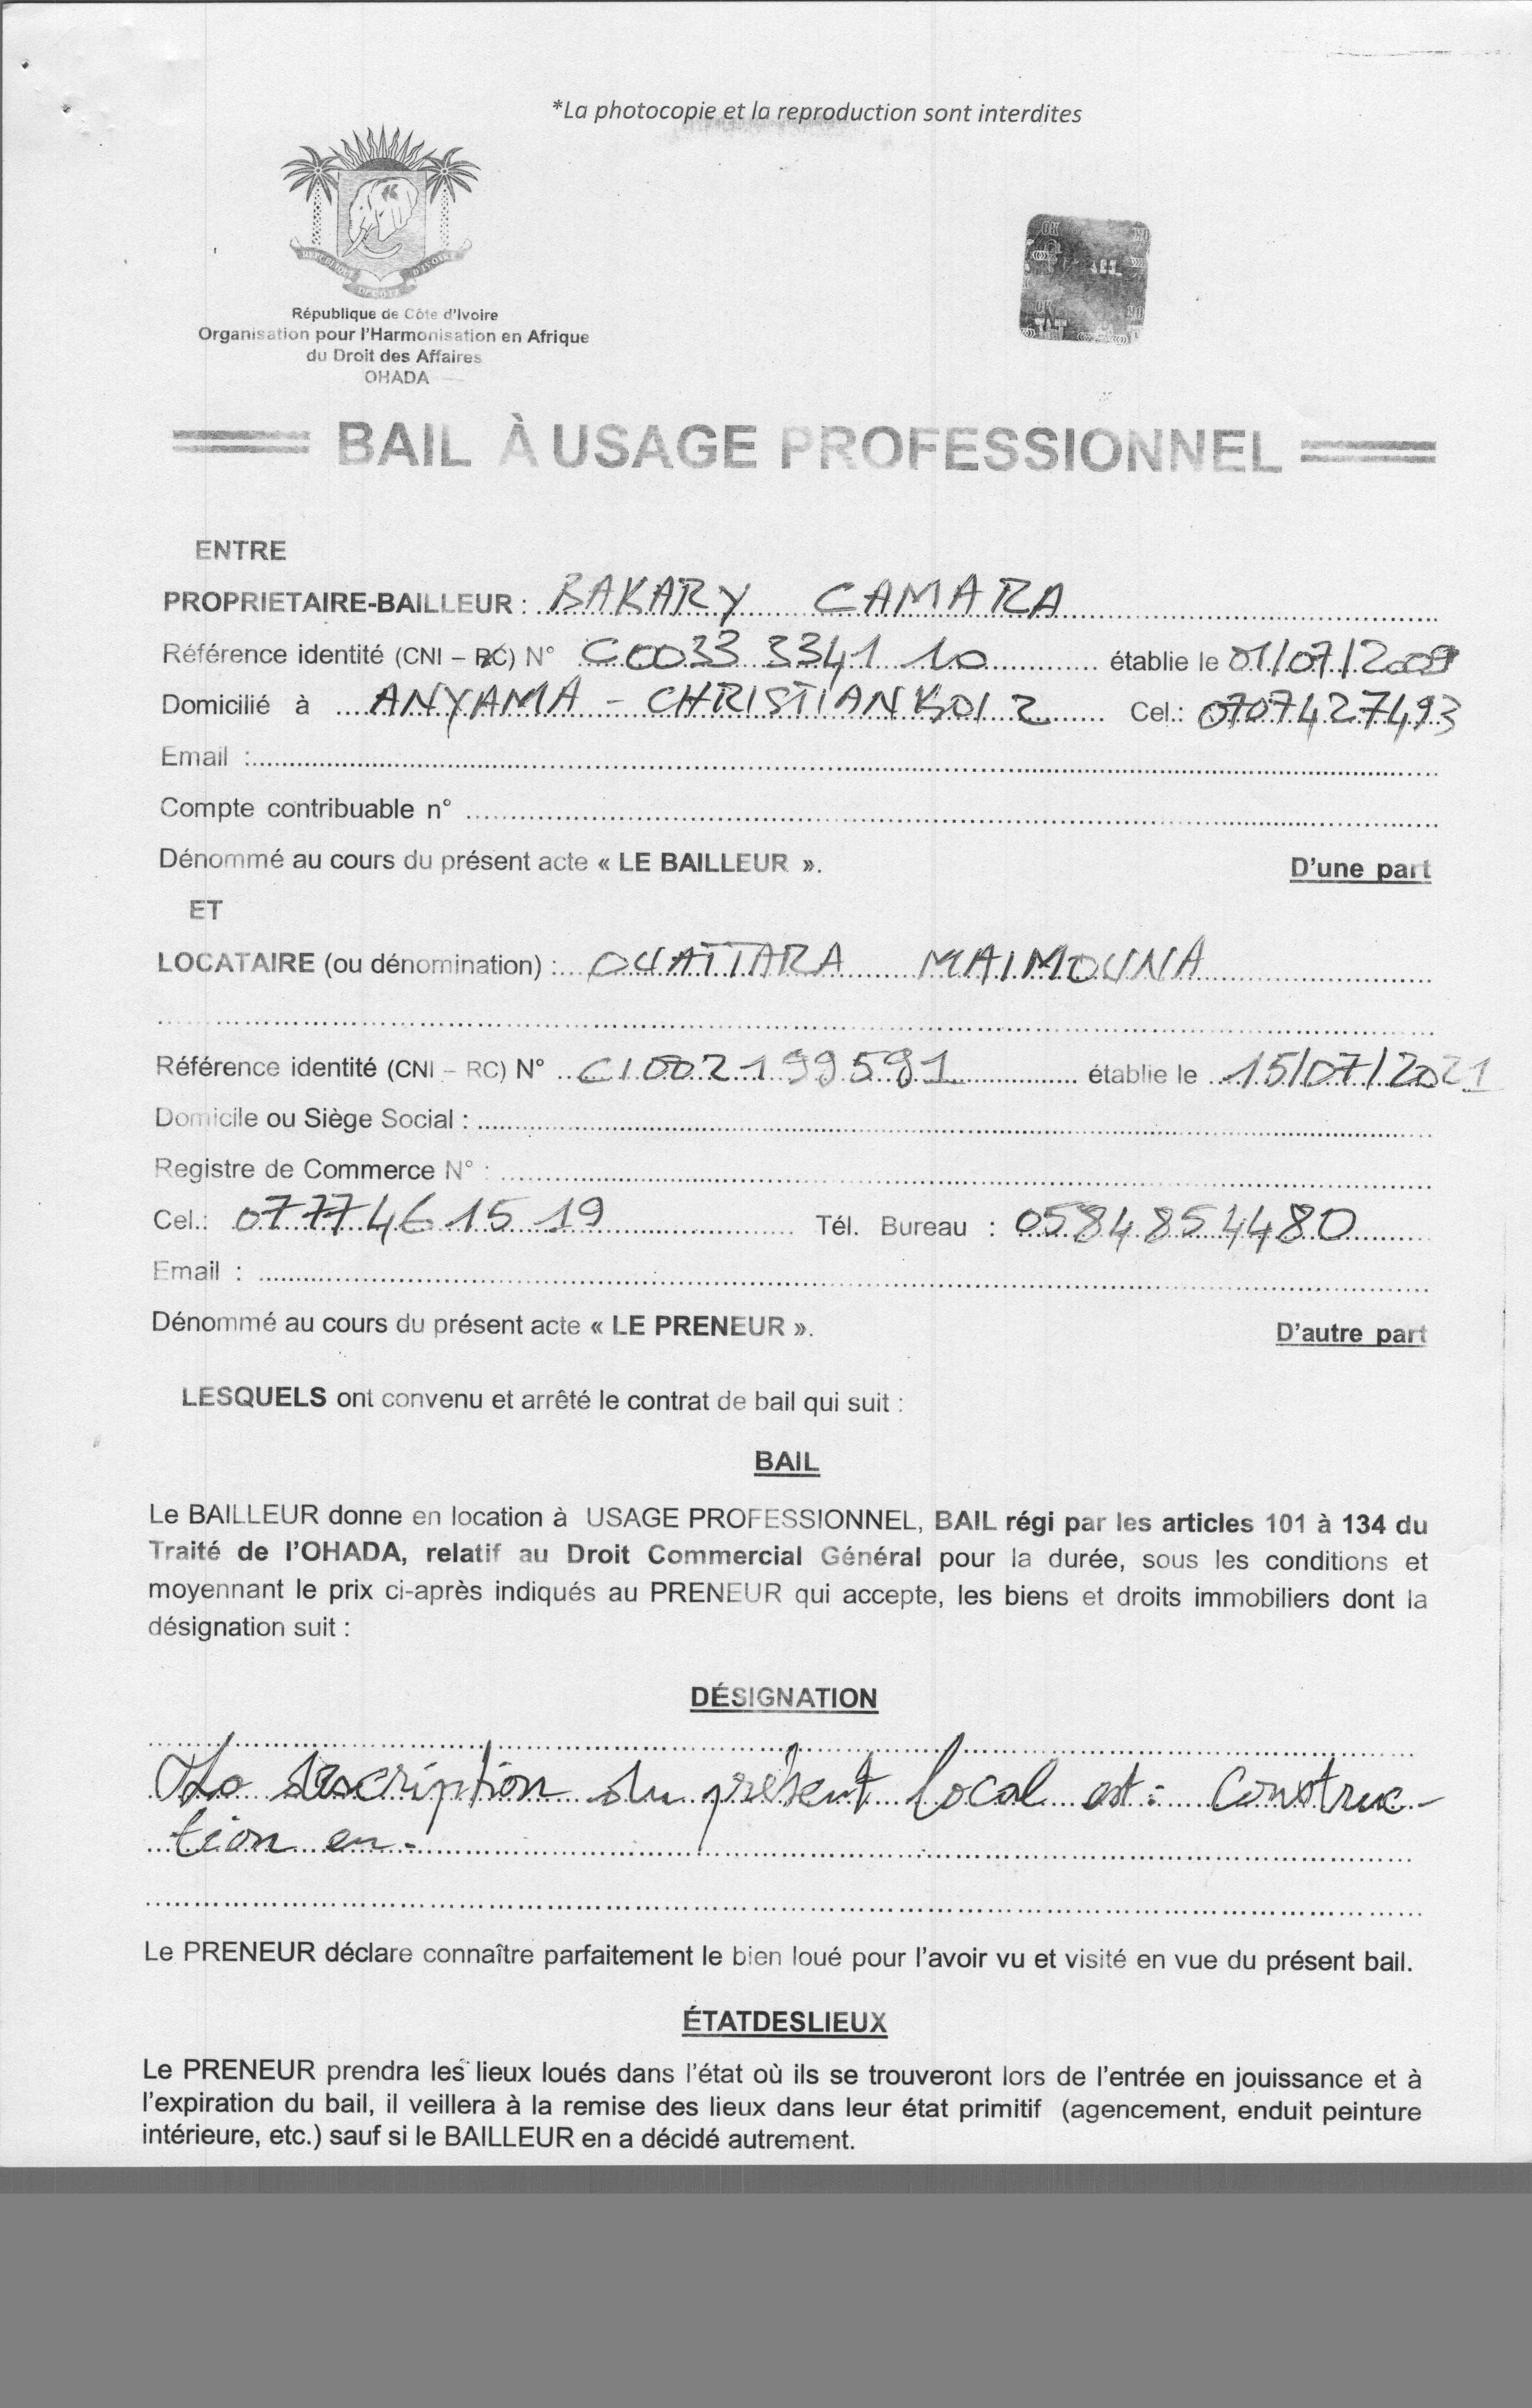 *La photocopie et la reproduction sont interdites
REPUBLIQUE DE CÔTE D'IVOIRE
République de Côte d'Ivoire
Organisation pour l'Harmonisation en Afrique
du Droit des Affaires
OHADA
BAIL À USAGE PROFESSIONNEL
ENTRE
PROPRIETAIRE-BAILLEUR : BAKARY CAMARA
Référence identité (CNI – RC) N° C0033 3341 10 établie le 01/07/2009
Domicilié à ANYAMA - CHRISTIANKOI 2 Cel.: 0707427493
Email :
Compte contribuable n°
Dénommé au cours du présent acte « LE BAILLEUR ». D'une part
ET
LOCATAIRE (ou dénomination) : OUATTARA MAIMOUNA
Référence identité (CNI – RC) N° CI002199591 établie le 15/07/2021
Domicile ou Siège Social :
Registre de Commerce N° :
Cel.: 0777461519 Tél. Bureau : 0584854480
Email :
Dénommé au cours du présent acte « LE PRENEUR ». D'autre part
LESQUELS ont convenu et arrêté le contrat de bail qui suit :
BAIL
Le BAILLEUR donne en location à USAGE PROFESSIONNEL, BAIL régi par les articles 101 à 134 du
Traité de l'OHADA, relatif au Droit Commercial Général pour la durée, sous les conditions et
moyennant le prix ci-après indiqués au PRENEUR qui accepte, les biens et droits immobiliers dont la
désignation suit :
DÉSIGNATION
La description du présent local est : Construc-
tion en -
Le PRENEUR déclare connaître parfaitement le bien loué pour l'avoir vu et visité en vue du présent bail.
ÉTATDESLIEUX
Le PRENEUR prendra les lieux loués dans l'état où ils se trouveront lors de l'entrée en jouissance et à
l'expiration du bail, il veillera à la remise des lieux dans leur état primitif (agencement, enduit peinture
intérieure, etc.) sauf si le BAILLEUR en a décidé autrement.